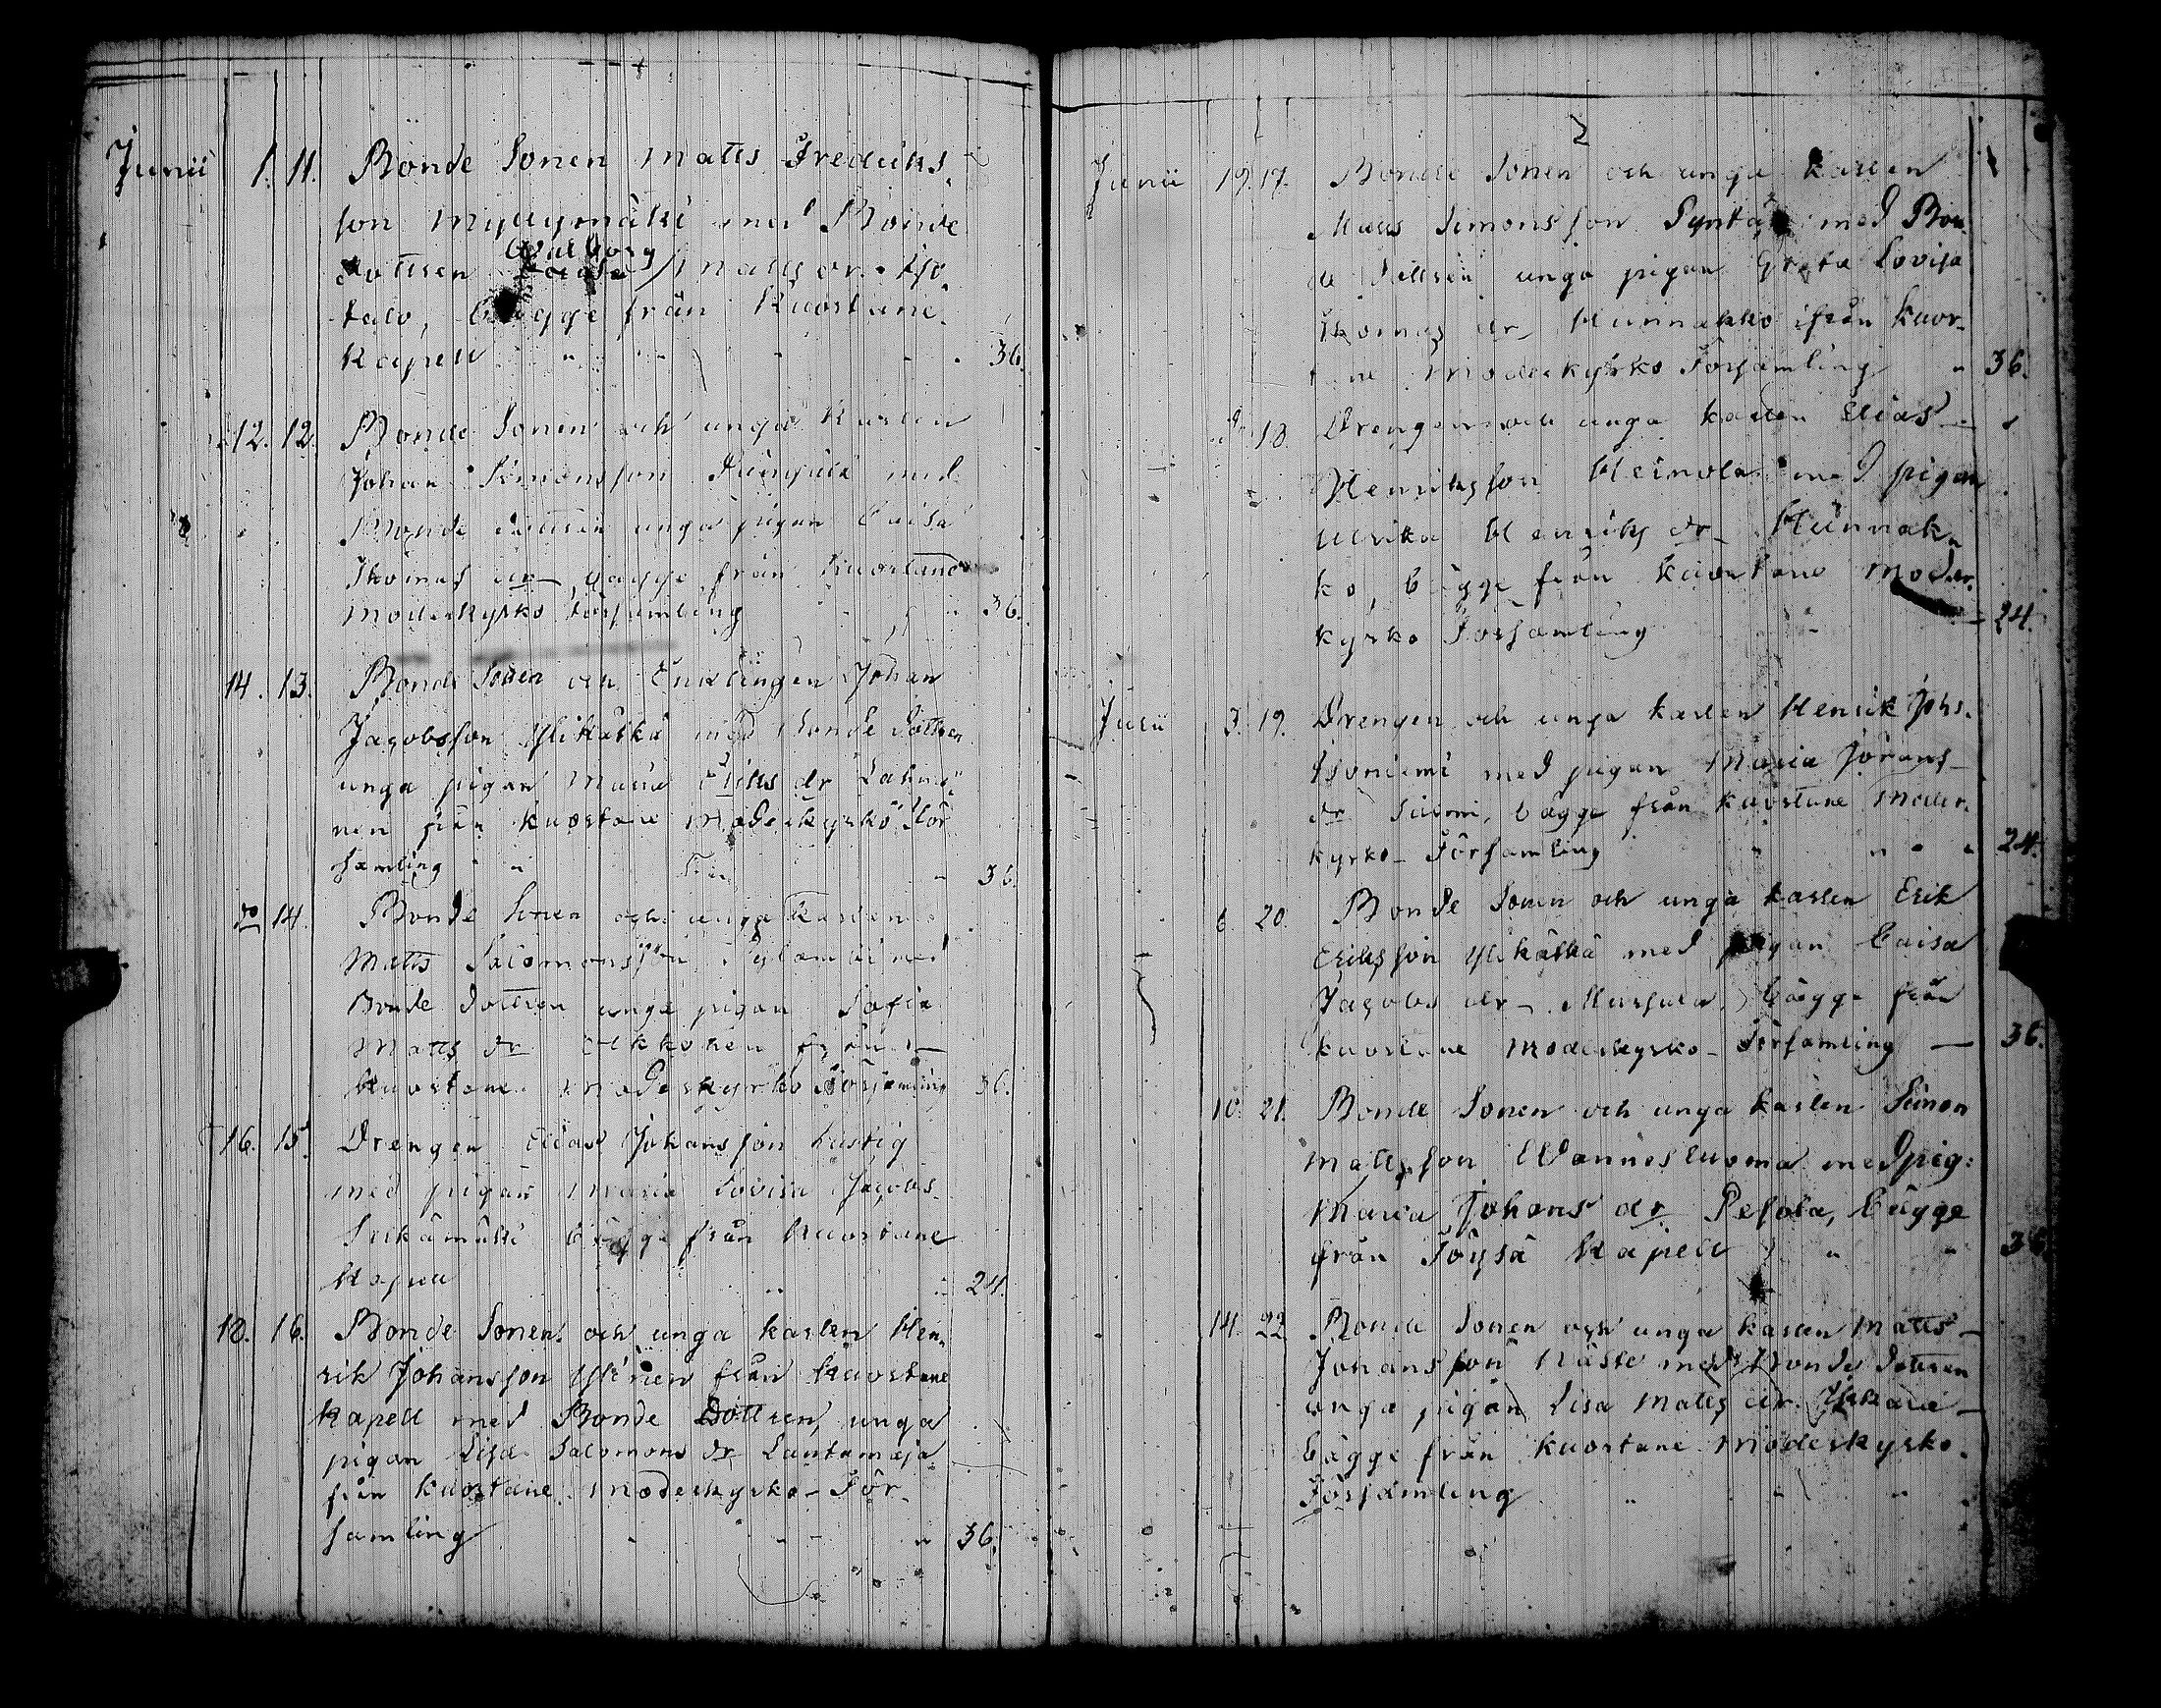 Junii 1. 11. Bonde Sonen Matts Fredriks-
son Myllymäki med Bonde
Walborg
dottren Matts dr. Iso-
talo, bägge från Kuortane
Kapell 36.
12. 12. Bonde Sonen och unga Karlen
Johan Simonsson med
Bonde dottren unga pigan Caisa
Thomas dr bägge från Kuortane
Moderkyrko församling 36.
14. 13. Bonde Sonen och Enklingen Johan
Jacobsson Ylikätkä med Bonde Dottren
unga pigan Maria Eriks dr Lahnai-
nen från Kuortane Moderkyrko För
samling 36.
do 14. Bonde Sonen och unga Karlen
Matts Salomonsson med
Bonde dottren unga pigan Sofia
Matts dr från
Kuortane Moderkyrko Församling 36.
16. 15. Drengen Elias Johansson Lustig
med pigan Maria Lovisa Jacobs-
bägge från Kuortane
Kapell 24.
18. 16. Bonde Sonen och unga Karlen Hen-
rik Johansson Ylinen från Kuortane
Kapell med Bonde Dottren, unga
pigan Lisa Salomons dr Lantamaja
från Kuortane Moderkyrko-För-
samling 36.
2
Junii 19. 17. Bonde Sonen och unga Karlen
Matts Simonsson med Bon-
de Dottren unga pigan Greta Lovisa
Thomas dr Hunnakko ifrån Kuor-
tane Moderkyrko Församling 36.
do 18. Drengen och unga karlen Elias
Henriksson Heinola med pigan
Ulrika Henriks dr Hunnak-
ko, bägge från Kuortane Moder-
kyrko Församling 24.
Julii 3. 19. Drengen och unga karlen Henrik Johs.
Isoniemi med pigan Maria Jörans
dr Salmi, bägge från Kuortane Moder-
kyrko-Församling 24.
6. 20. Bonde Sonen och unga karlen Erik
Eriksson Ylikätkä med pigan Caisa
Jacobs dr bägge från
Kuortane Moderkyrko-Församling 36.
10. 21. Bonde Sonen och unga karlen Simon
Mattsson Wannesluoma med pig:
Maria Johans dr Pesola, bägge
från Töysä Kapell 36
14. 22 Bonde Sonen och unga karlen Matts
Johansson med Bonde Dottren
unga pigan Lisa Matts dr.
bägge från Kuortane Moderkyrko-
Församling